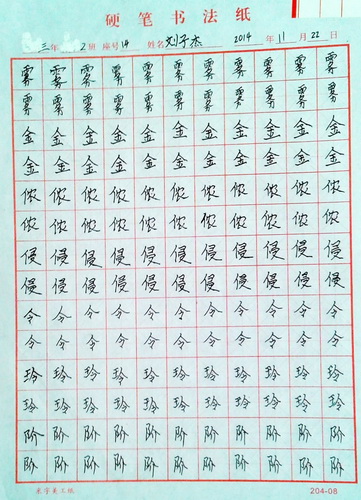 硬笔书法纸
三年2班 座号14 姓名 刘子杰 2014年11月22日
雾雾雾雾雾雾雾雾雾雾雾
雾雾雾雾雾雾雾雾雾雾雾
金金金金金金金金金金金
金金金金金金金金金金金
侬侬侬侬侬侬侬侬侬侬侬
侬侬侬侬侬侬侬侬侬侬侬
侵侵侵侵侵侵侵侵侵侵侵
侵侵侵侵侵侵侵侵侵侵侵
令令令令令令令令令令令
令令令令令令令令令令令
玲玲玲玲玲玲玲玲玲玲玲
玲玲玲玲玲玲玲玲玲玲玲
阶阶阶阶阶阶阶阶阶阶阶
阶阶阶阶阶阶阶阶阶阶阶
204-08